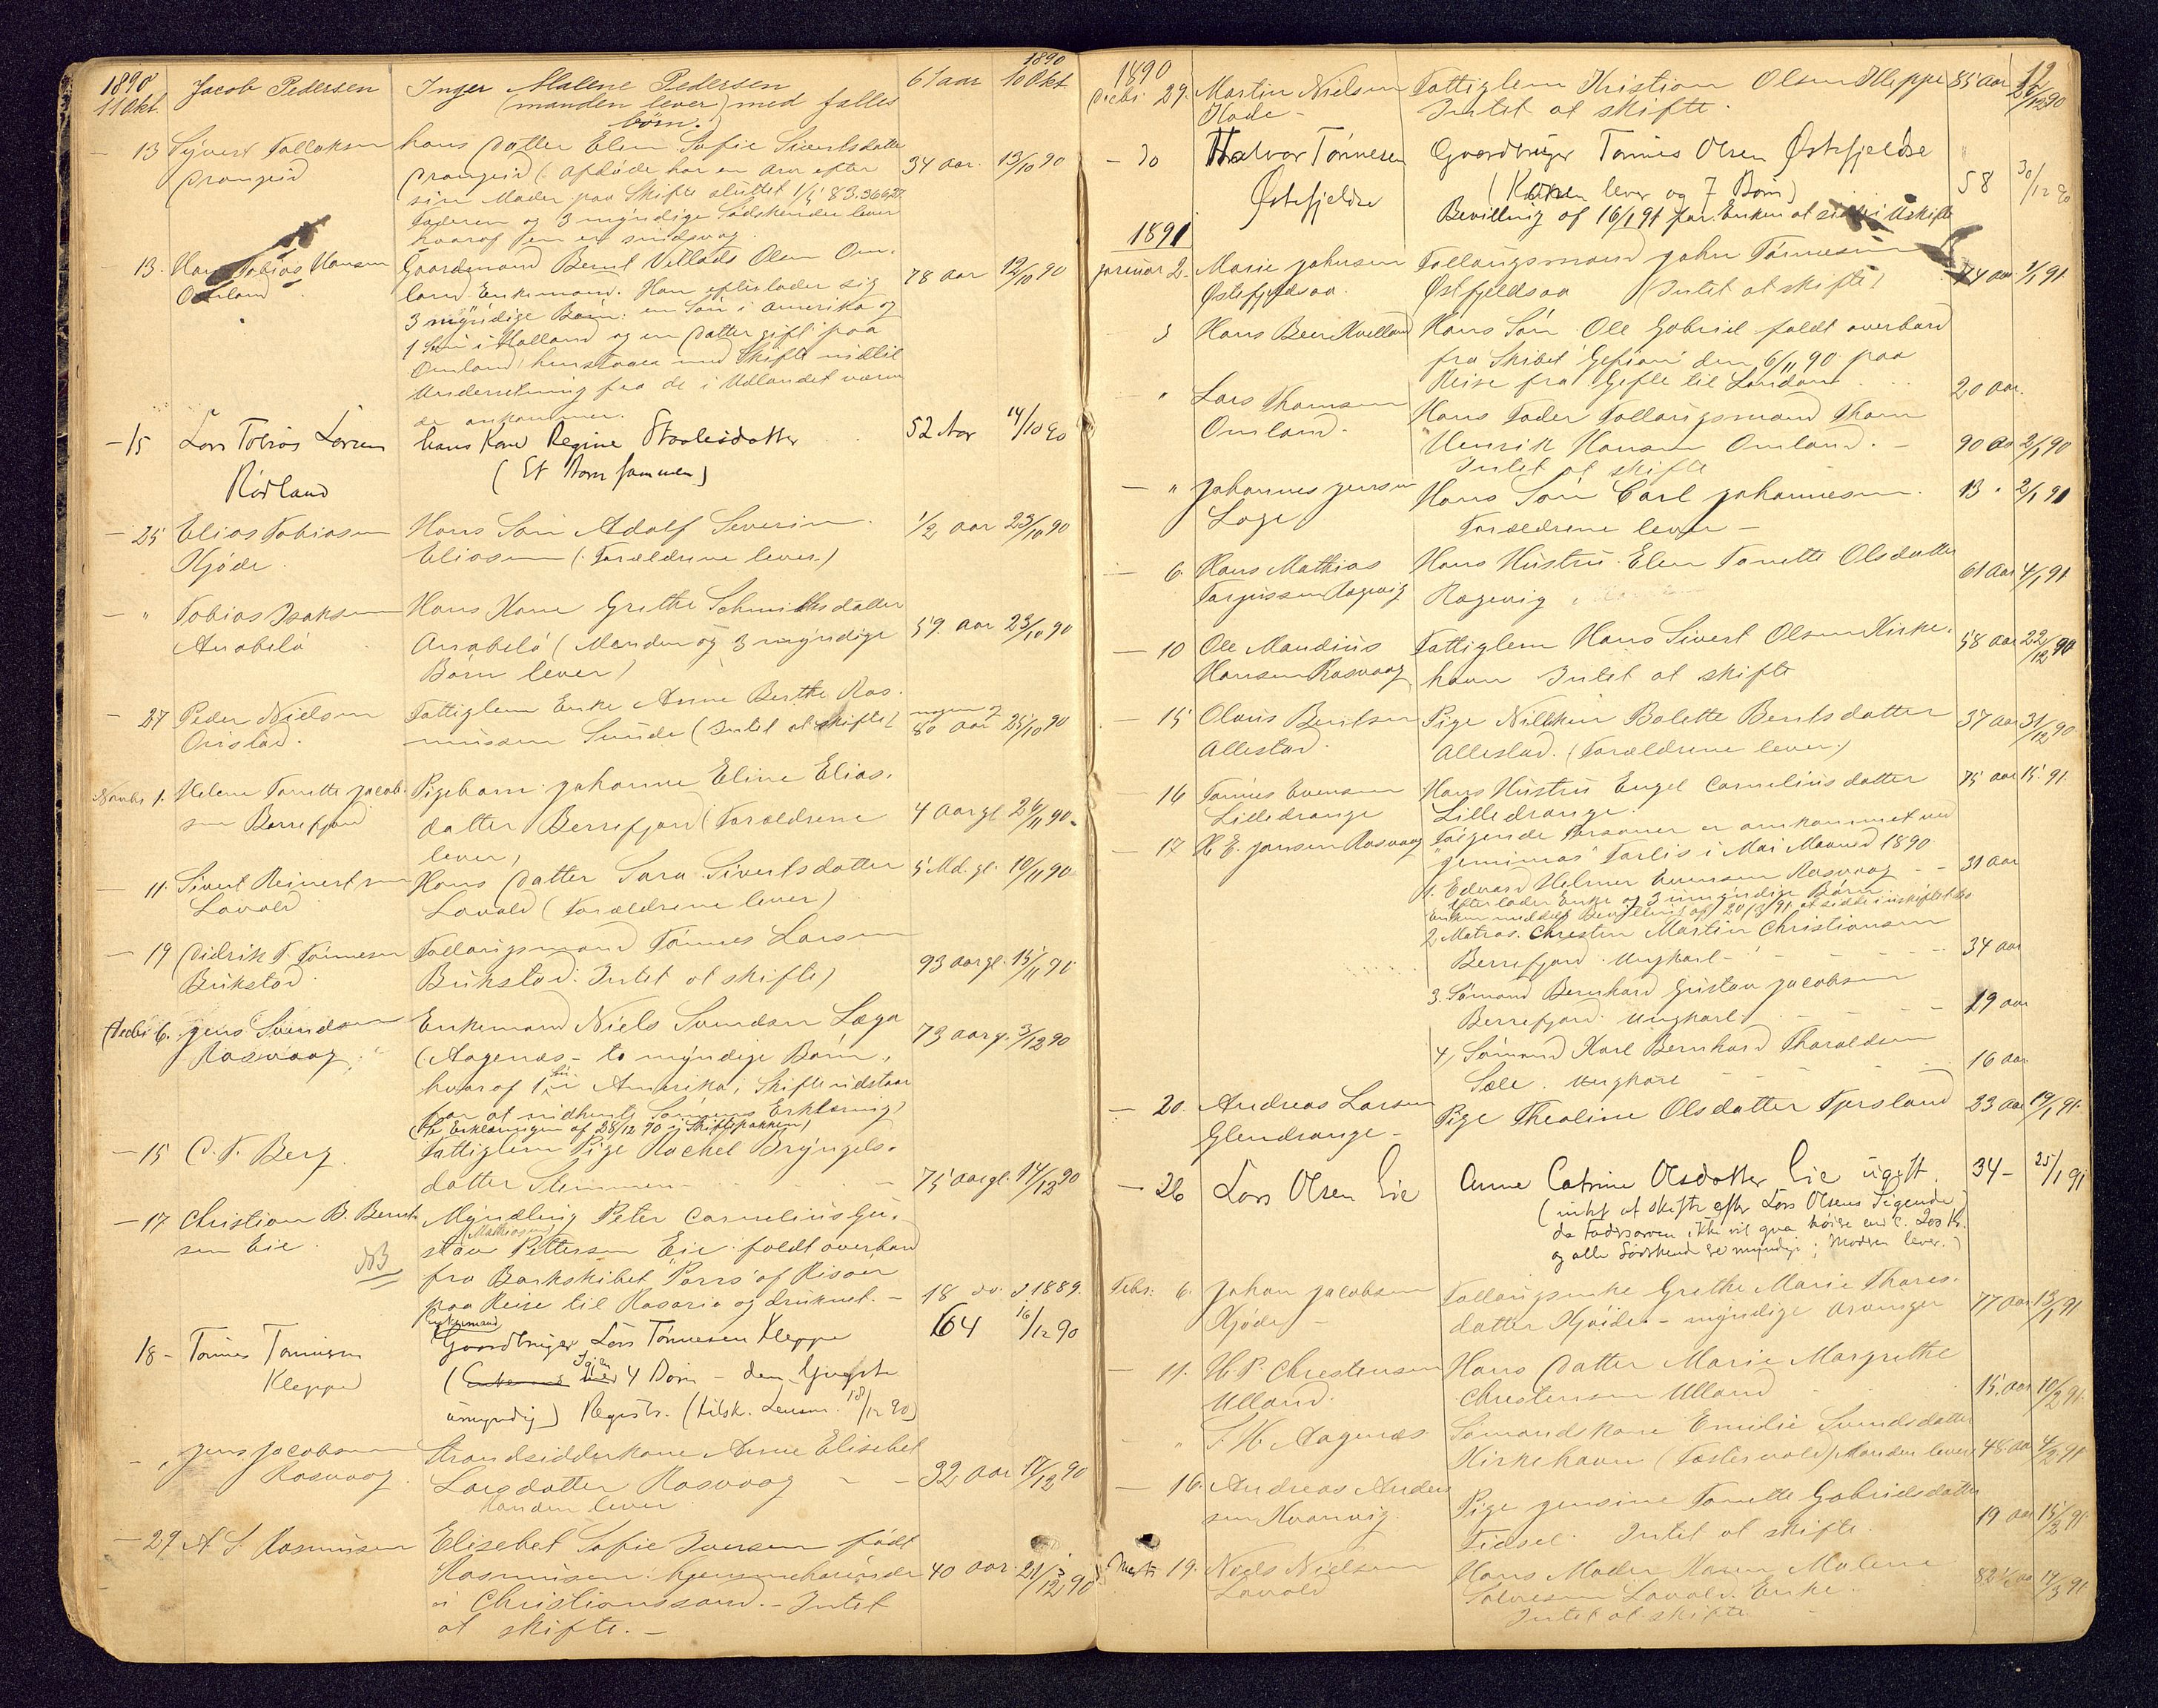 1890
11 Okt.
Jacob Pedersen
Inger Malene Pedersen
(manden lever) med fælles
børn.
61 aar
1890
10 Okt.
— 13
Syvert Tollaksen
Drangeid
hans Datter Elen Sofie Sivertsdatter
Drangeid (: Afdøde har en Arv efter
sin Moder paa Skifte sluttet
Faderen og 3 myndige Sødskende lever
hvoraf en er sindsvag.
34 aar.
13/10 90
13.
Hans Tobias Hansen
Omland
Gaardmand Bernt Villads Olsen Om-
land Enkemand. Han efterlader sig
3 myndige Børn: en Søn i Amerika og
1 Søn i Holland og en Datter gift paa
Omland, henstaaer med Skifte indtil
Underretning fra de i Udlandet være-
de ankommer.
78 aar
12/10 90
— 15
Lars Tobias Larsen
Rødland
hans Kone Regine Staalesdatter
(Et Barn sammen)
52 Aar
14/10 90
— 25
Elias Tobiasen
Kjøde
Hans Søn Adolf Severin
Eliasen (: Forældrene lever.)
1/2 aar
23/10 90
— "
Tobias Isaksen
Anabelø
Hans Kone Grethe Schmidtsdatter
Anabelø (Manden og 3 myndige
Børn lever)
59 aar
23/10 90
— 27
Peder Nielsen
Øvistad.
Fattiglem Enke Anne Berthe Ras-
mussen Sunde (Intet at skifte)
nogen og
80 aar
25/10 90
Novbr 1.
Helene Tonette Jacob-
sen Berrefjord
Pigebarn Johanne Eline Elias-
datter Berrefjord (Forældrene
lever)
4 aar gl
— 11.
Sivert Reinertsen
Lavold
Hans Datter Sara Sivertsdatter
Lavold (Forældrene lever)
5 Md. gl.
10/11 90
— 19
Didrik T. Tønnesen
Birkstad
Follaugsmand Tønnes Larsen
Birkstad. Intet at skifte)
93 aar gl.
15/11 90
Decbr 6.
Jens Svendsen
Rasvaag
Enkemand Niels Svendsen Læga
(Aagenæs - to myndige Børn,
hvoraf 1 i Amerika; Skifte udstaar
for at indhente Sønnens Erklæring)
(Se Erklæringen af 28/12 90 i Skiftepakken)
73 aar g.
3/12 90
— 15
C. F. Berg
Fattiglem Pige Rachel Bryngels-
datter Stemmen
75 aar gl.
14/12 90
— 17
Christian B. Bernt-
sen Eie
NB
Myndling Peter Cornelius Gu-
stav Mathias Pettersen Eie faldt overbord
fra Barkskibet "Parro" af Risøer
paa Reise til Rosario og druknet. —
18 do.
1889.
18 —
Tønnes Tønnesen
Kleppe
Enkemand
Gaardbruger Lars Tønnesen Kleppe
( 4 Børn — den yngste
umyndig) Registr. (tilsk. Lensm. 18/12 90)
64
16/12 90
— "
Jens Jacobsen
Rasvaag
Strandsidderkone Anne Elisebet
Larsdatter Rasvaag
Manden lever
32 aar
17/12 90
— 29
A. S. Rasmussen
Elisebet Sofie Iversen født
Rasmussen. hjemmehørende
i Christianssand. — Intet
at skifte. —
40 aar
21/12 90
1890
Decbr. 29.
Martin Nielsen
Hode —
Fattiglem Kristian Olsen Kleppe
Intet at skifte.
85 aar
26/12 90
— 30
Halvor Tønnesen
Østefjeldse
Gaardbruger Tønnes Olsen Østefjeldse
(Konen lever og 7 Børn)
Bevilling af 16/1 91 for Enken at sidde i Uskifte
58
30/12 90
1891
Januar 2
Marie Johnsen
Østefjeldsaa.
Follaugsmand John Tønnesen
Østfjeldsaa (Intet at skifte)
74 aar
1/1 91
3
Hans Beer Kvelland
Hans Søn Ole Gabriel faldt overbord
fra Skibet "Gefion" den 6/11 90 paa
Reise fra Gefle til London
20 aar.
"
Lars Thomsen
Omland.
Hans Fader Follaugsmand Thom
Henrik Hansen Omland. —
Intet at skifte
90 aar
2/1 90
— "
Johannes Jensen
Lage
Hans Søn Carl Johannesen.
Forældrene lever —
13 "
2/1 91
— 6
Hans Mathias
Torgiussen Ragevig
Hans Hustru Elen Tonette Olsdatter
Ragevig
61 aar
4/1 91
— 10
Ole Maudius
Hansen Rasvaag
Fattiglem Hans Sivert Olsen Kirke-
havn Intet at skifte
58 aar
22/12 90
— 15
Olaus Berntsen
Allestad.
Pige Nilken Bolette Berntsdatter
Allestad. (Forældrene lever)
37 aar
31/12 90
— 16
Tønnes Evensen
Lilledrange
Hans Hustru Engel Corneliusdatter
Lilledrange
75 aar
— 17
H E. Jansen Rasvaag
Følgende Personer er omkommet ved
"Jeminas" Forlis i Mai Maaned 1890
1. Edvard Helmer Evensen Rasvaag
Efterlader Enke og 3 umyndige Børn
Enken meddelt Bevilling af 20/3 91 at sidde i uskiftet Bo
31 aar
2. Matros. Chresten Martin Christiansen
Berrefjord. Ungkarl —
34 aar
3. Sømand Bernhard Gustav Jacobsen
Berrefjord. Ungkarl.
19 aar
4, Sømand Karl Bernhard Tharaldsen
Sæle. Ungkarl
16 aar
— 20.
Andreas Larsen
Glendrange —
Pige Thealine Olsdatter Tjersland
23 aar
19/1 91.
— 26
Lars Olsen Eie
Anne Catrine Olsdatter Eie ugift.
(intet at skifte efter Lars Olsens Sigende
da Fadersarven ikke vil gaa høiere end c. 200 Kr.
og alle Sødskende er myndige; Moderen lever.)
34 —
25/1 91
Febr. 6.
Johan Jacobsen
Kjøde —
Follaugsenke Grethe Marie Thores-
datter Kjøide — myndige Arvinger
77 aar
13/1 91
— 11.
H. P. Chrestensen
Ulland.
Hans Datter Marie Margrethe
Chrestensen Ulland
15 aar
10/2 91.
"
T. H. Aagenæs
Sømandskone Emilie Svendsdatter
Kirkehavn (Fastevold) Manden lever
48 aar
4/2 91
— 16.
Andreas Anders
sen Kvanvig.
Pige Jensine Tonette Gabrielsdatter
Fidsel. Intet at skifte.
19 aar
15/2 91
Marts 19.
Niels Nielsen
Lavold
Hans Moder Karen Malene
Salvesen Lavold. Enke.
Intet at skifte.
17/3 91